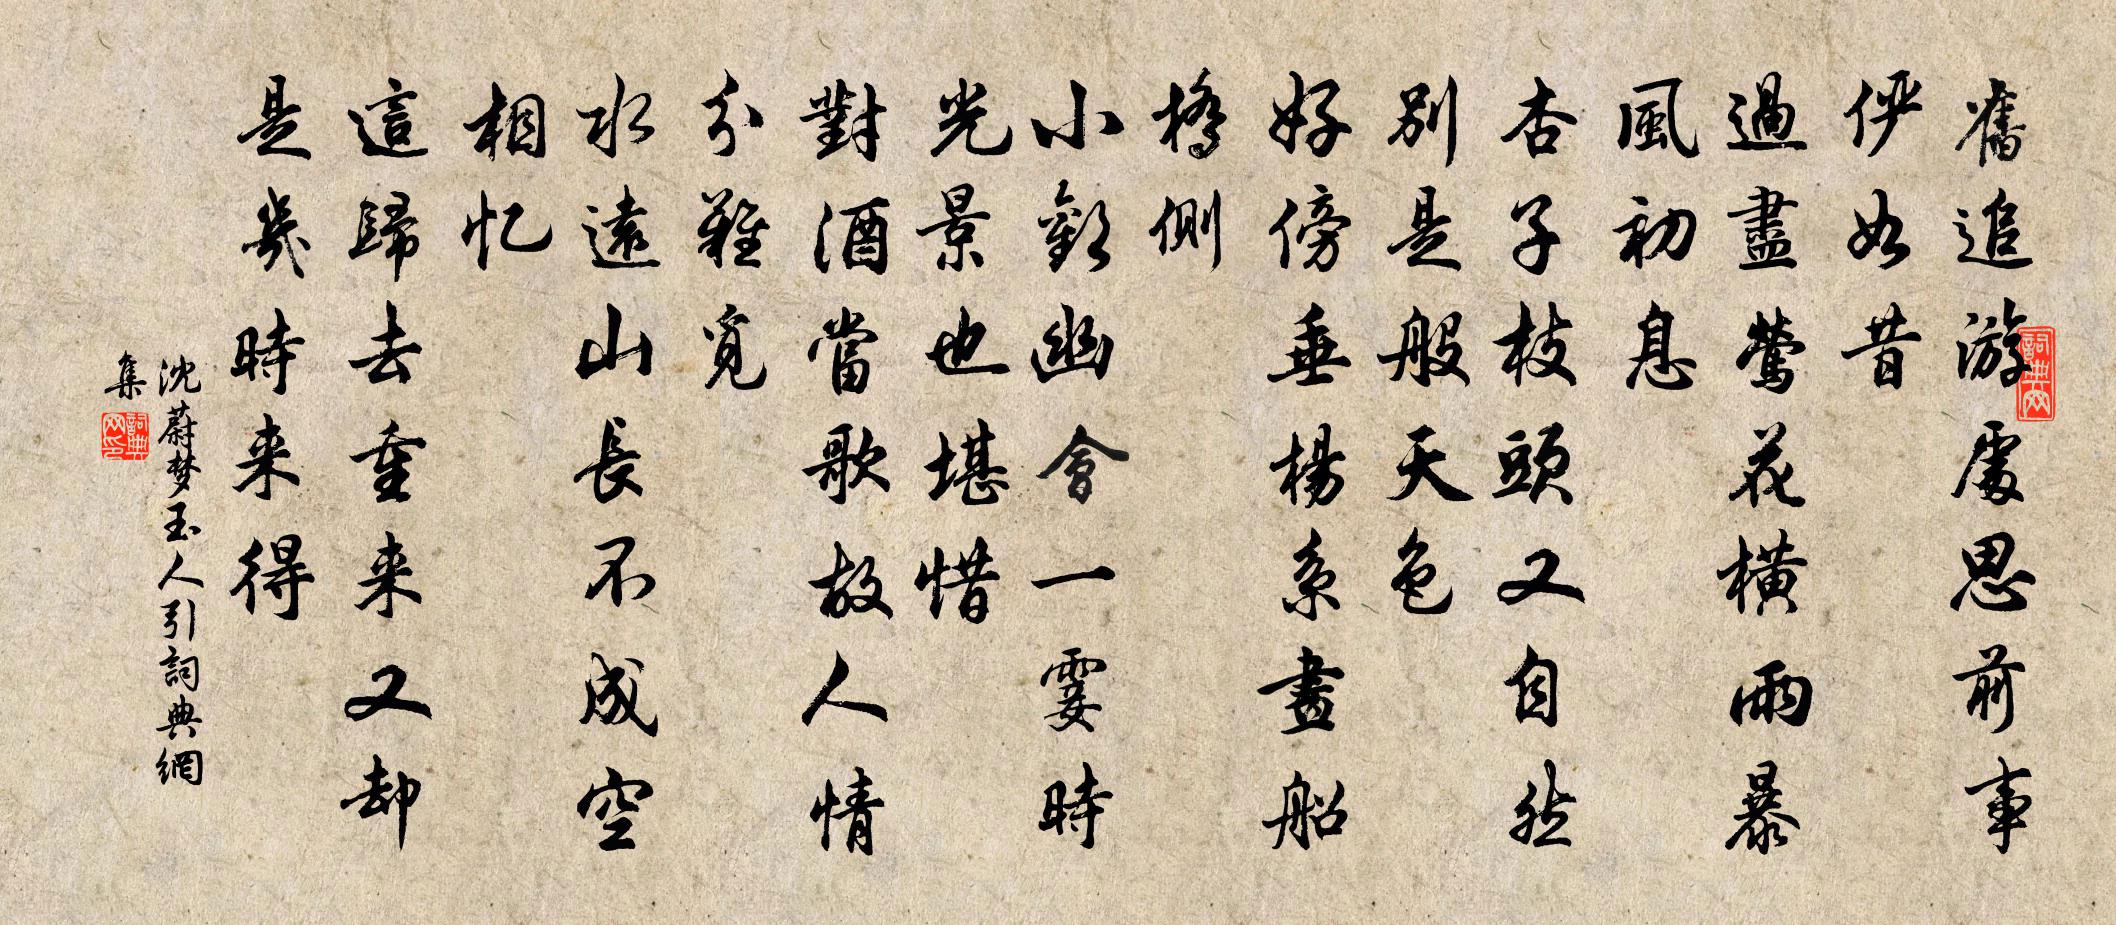 舊追游處思前事
俨如昔
過盡鶯花橫雨暴
風初息
杏子枝頭又自然
別是般天色
好傍垂楊系畫船
橋側
小歡幽會一霎時
光景也堪惜
對酒當歌故人情
分難覓
水遠山長不成空
相忆
這歸去重来又却
是幾時来得
沈蔚梦玉人引詞典網
集
詞典网
詞典网印